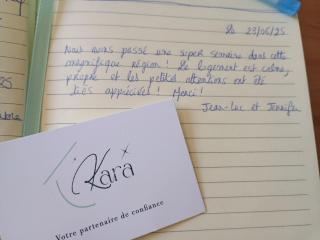 Le 23/05/25.
Nous avons passé une super semaine dans cette
magnifique région ! Le logement est calme,
propre et les petites attentions ont été
très appréciées ! Merci !
Jean-Luc et Jennifer
25
Kara
Votre partenaire de confiance